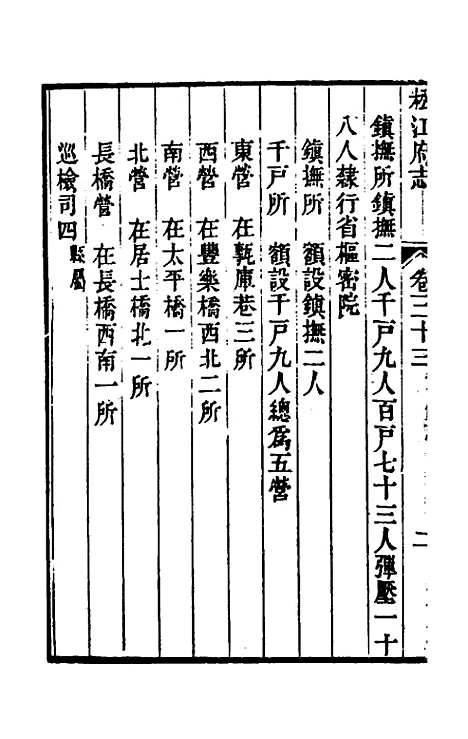 松江府志 卷三十三 二
鎮撫所鎮撫二人千戸九人百戸七十三人彈壓一十
八人隸行省樞密院
鎮撫所 額設鎮撫二人
千戸所 額設千戸九人總爲五營
東營 在甎庫巷三所
西營 在豐樂橋西北二所
南營 在太平橋一所
北營 在居士橋北一所
長橋營 在長橋西南一所
巡檢司四縣屬